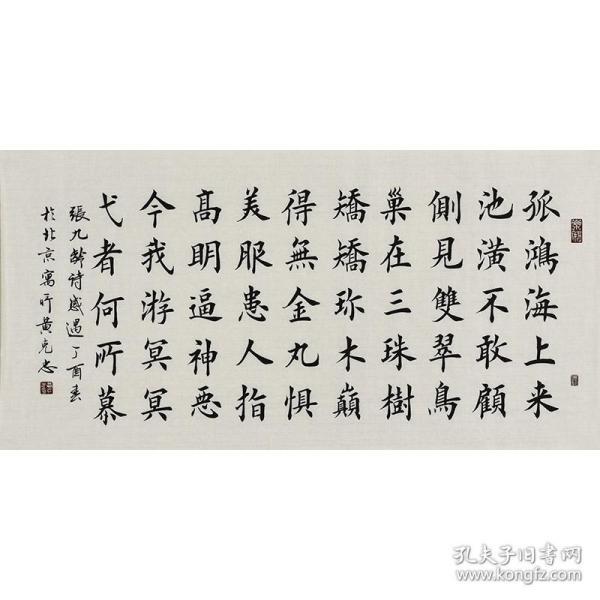 孤鴻海上来
池潢不敢顧
側見雙翠鳥
巢在三珠樹
矯矯珎木巔
得無金丸懼
美服患人指
高明逼神惡
今我游冥冥
弋者何所慕
張九齡詩感遇丁酉春
於北京寓所黄克忠
孔夫子旧书网
www.kongfz.com